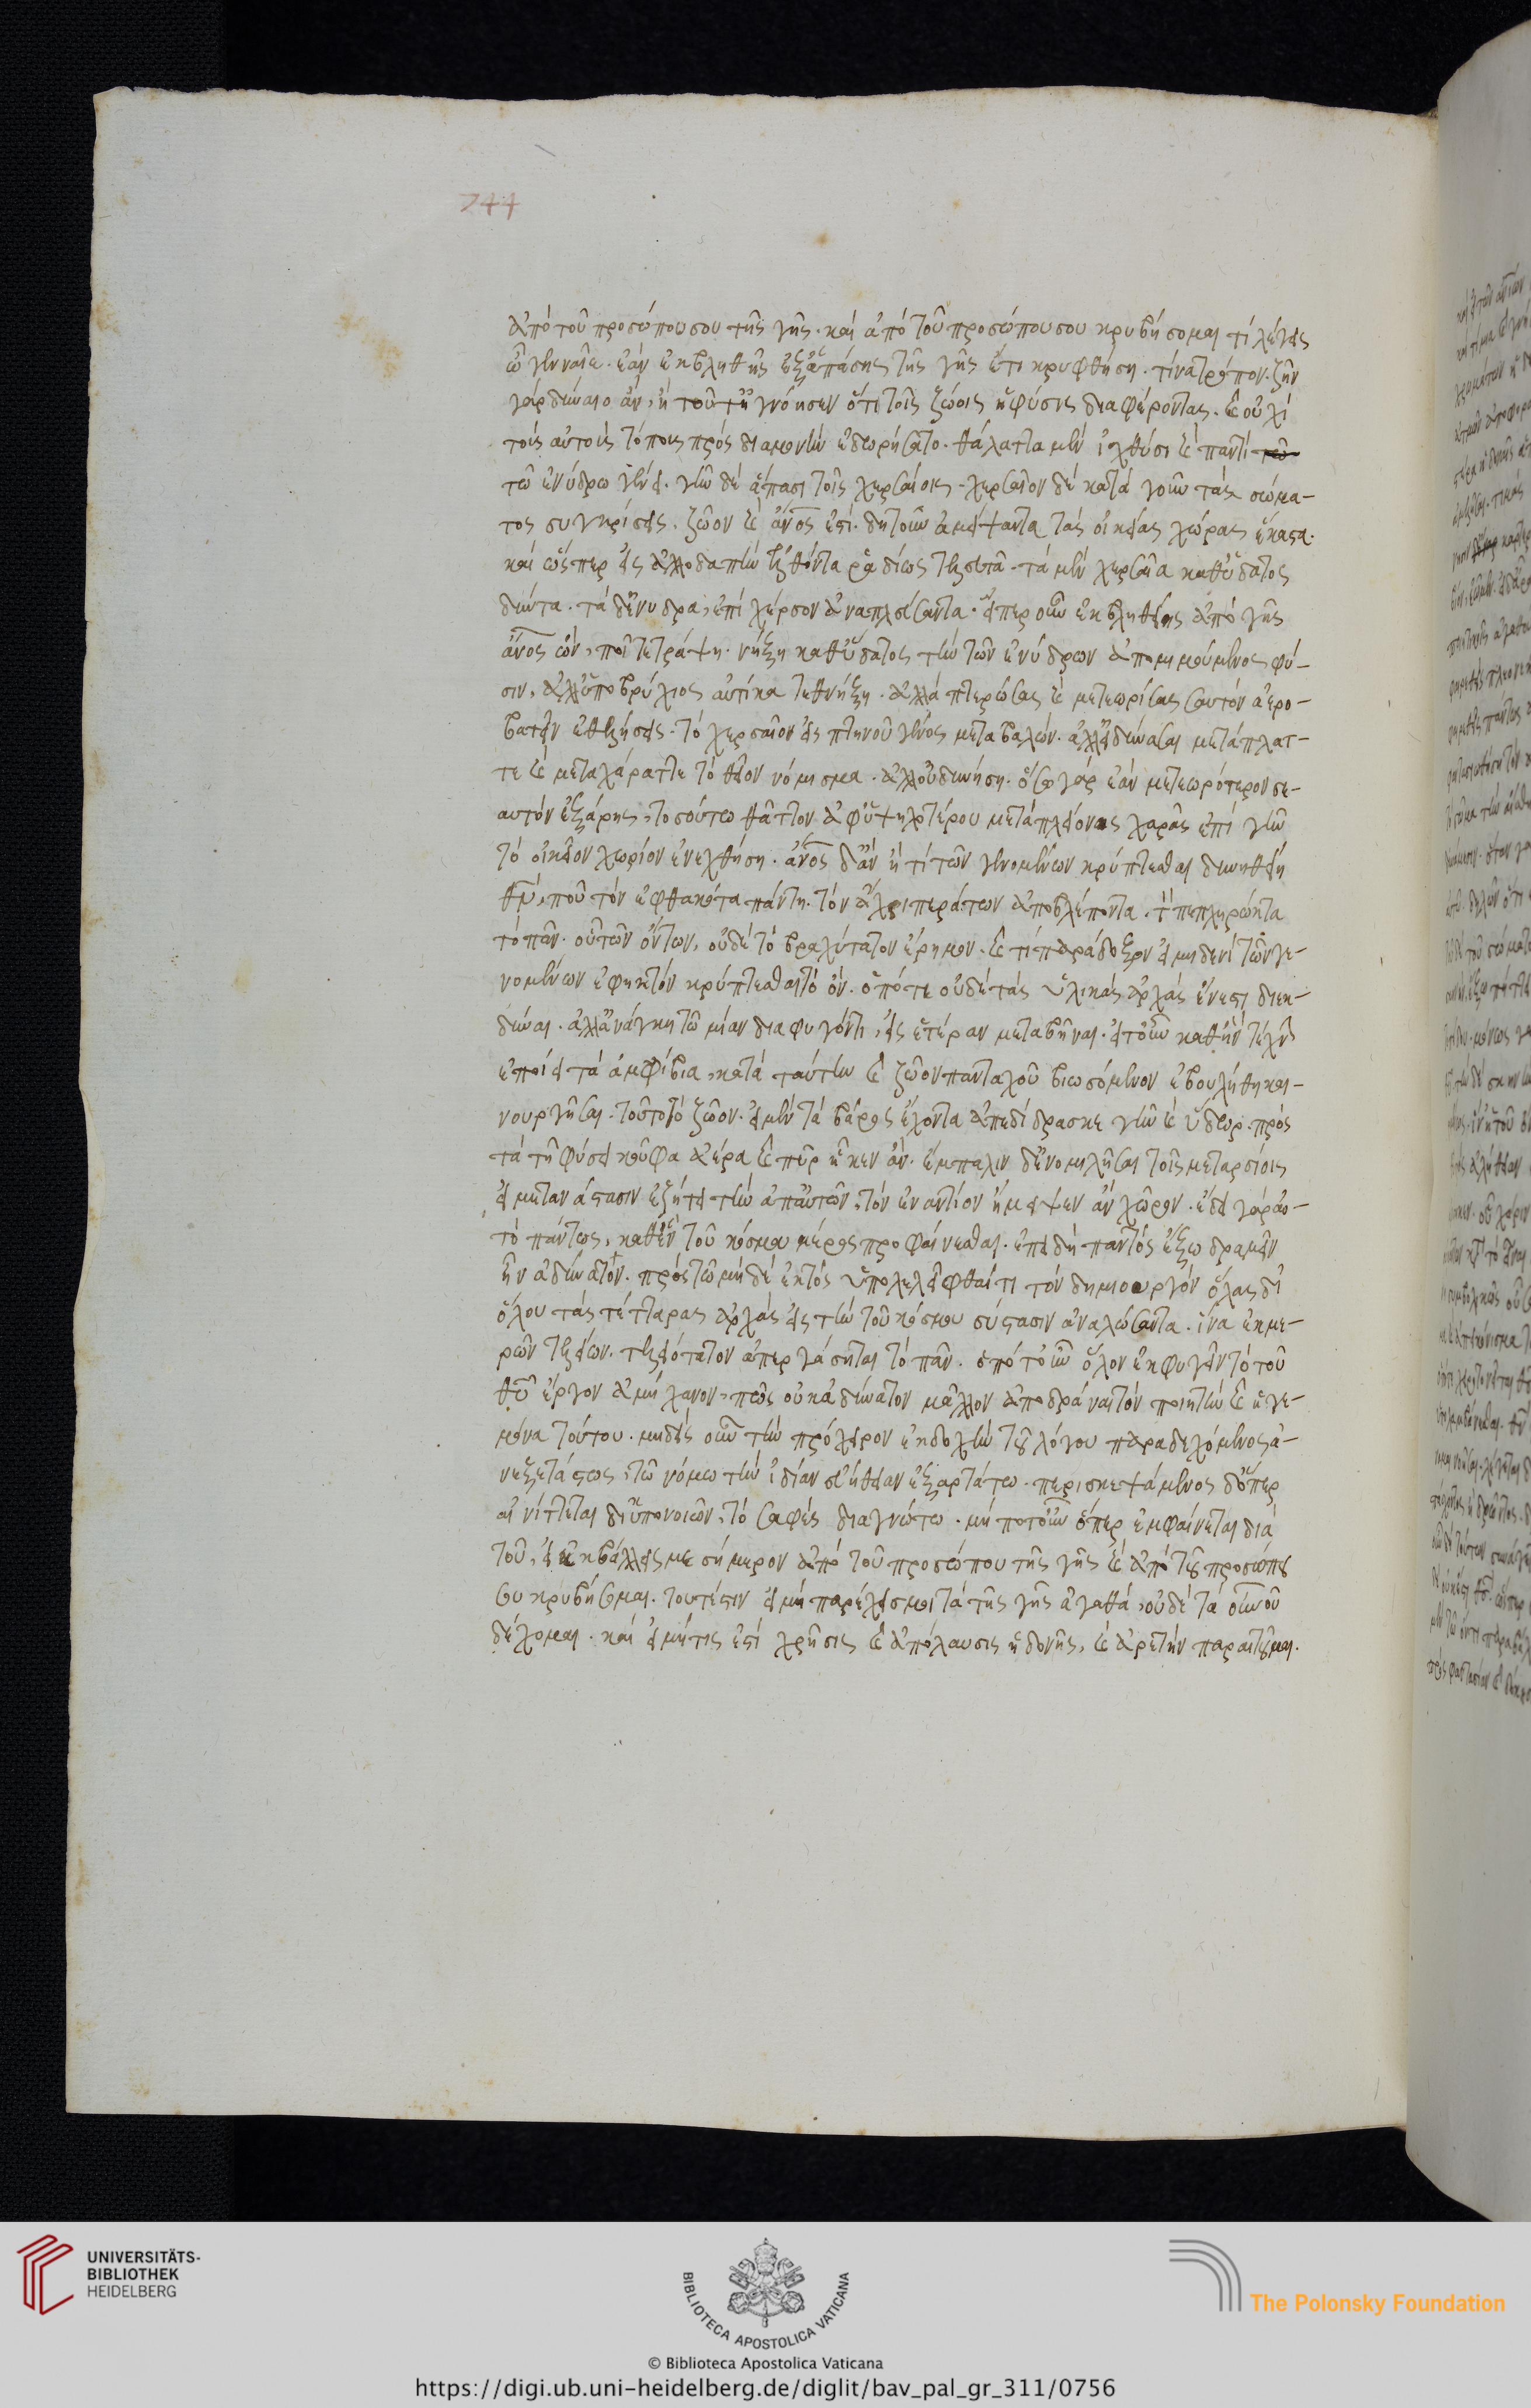 244
ἀπὸ τοῦ προσώπου σου τῆς γῆς. καὶ ἀπὸ τοῦ προσώπου σου κρυβήσομαι τί λέγεις
ὦ γενναῖε. ἐὰν ἐκβληθῆς ἐξ ἁπάσης τῆς γῆς ἔτι κρυφθήση. τίνα τρόπον. ζῆν
γὰρ δύναιο ἄν, ἢ τοῦτ' ἠγνόησεν ὅτι τοῖς ζώοις ἡ φύσις διαφέροντας. καὶ οὐχὶ
τοὺς αὐτοὺς τόπους πρὸς διαμονὴν ἐδωρήσατο. θάλατταν μὲν ἰχθύσι καὶ παντὶ
τῶ ἐνύδρω γένει. γῆν δὲ ἅπασι τοῖς χερσαίοις. χερσαῖον δὲ κατὰ γοῦν τὰς σώμα-
τος συγκρίσεις. ζῶον καὶ ἄνος ἐστί. δητοῦν ἀμείψαντα τὰς οἰκείας χώρας ἕκαστα.
καὶ ὥσπερ εἰς ἀλλοδαπὴν ἐλθόντα ῥαδίως τελευτᾶ. τὰ μὲν χερσαῖα καθ' ὕδατος
δύντα. τὰ δ' ἔνυδρα, ἐπὶ χέρσον ἀναπλεύσαντα. εἴπερ οὖν ἐκβληθείης ἀπὸ γῆς
ἄνος ὤν, ποῖ τετράψη. νήξη καθ' ὕδατος τὴν τῶν ἐνύδρων ἀπομιμούμενος φύ-
σιν, ἀλλ' ὑποβρύχιος αὐτίκα τεθνήξη. ἀλλὰ πτερώσας καὶ μετεωρίσας σαυτὸν ἀερο-
βατεῖν ἐθελήσεις. τὸ χερσαῖον εἰς πτηνοῦ γένος μεταβαλών. ἀλλ' εἰ δύνασαι μετάπλατ-
τε καὶ μεταχάραττε τὸ θεῖον νόμισμα. ἀλλ' οὐ δυνήση. ὅσω γὰρ ἐὰν μετεωρότερον σε-
αυτὸν ἐξάρης, τοσούτω θᾶττον ἀφ' ὑψηλοτέρου μετὰ πλείονος χαρᾶς ἐπὶ γῆν
τὸ οἰκεῖον χωρίον ἐνεχθήση. ἄνος δ' ἂν ἤ τί τῶν γενομένων κρύπτεσθαι δυνηθείη
θν, ποῦ τὸν ἐφθακότα πάντη. τὸν ἄχρι περάτων ἀποβλέποντα. τὸν πεπληρωκότα
τὸ πᾶν. οὗ τῶν ὄντων, οὐδὲ τὸ βραχύτατον ἔρημον. καὶ τί παράδοξον εἰ μηδενὶ τῶν γε-
νομένων ἐφικτὸν κρύπτεσθαι τὸ ὄν. ὁπότε οὐδὲ τὰς ὑλικὰς ἀρχὰς ἔνεστι διεκ-
δῦναι. ἀλλ' ἀνάγκη τῶ μίαν διαφυγόντι, εἰς ἑτέραν μεταβῆναι. εἴ τοὖν καθ' ἣν τέχν
ἐποίει τὰ ἀμφίβια, κατὰ ταύτην καὶ ζῶον πανταχοῦ βιωσόμενον ἐβουλήθη και-
νουργῆσαι. τοῦτο τὸ ζῶον. εἰ μὲν τὰ βάρος ἔχοντα ἀπεδίδρασκε γῆν καὶ ὕδωρ. πρὸς
τὰ τῆ φύσει κοῦφα ἀέρα καὶ πῦρ ἧκεν ἄν. ἔμπαλιν δ' ἐνομιλῆσαι τοῖς μεταρσίοις
εἰ μετανάστασιν ἐζήτει τὴν ἀπ' αὐτῶν, τὸν ἐναντίον ἤμειψεν ἂν χῶρον. ἔδει γὰρ αὐ-
τὸ πάντως, καθ' ἓν τοῦ κόσμου μέρος προφαίνεσθαι. ἐπειδὴ παντὸς ἔξω δραμεῖν
ἦν ἀδύνατον. πρὸς τῶ μηδὲ ἐκτὸς ὑπολελεῖφθαί τι τὸν δημιουργὸν ὅλας δι'
ὅλου τὰς τέτταρας ἀρχὰς εἰς τὴν τοῦ κόσμου σύστασιν ἀναλώσαντα. ἵνα ἐκ με-
ρῶν τελείων. τελειότατον ἀπεργάσηται τὸ πᾶν. ὁπότ' οὖν ὅλον ἐκφυγεῖν τὸ τοῦ
θυ ἔργον ἀμήχανον, πῶς οὐκ ἀδύνατον μᾶλλον ἀποδρᾶναι τὸν ποιητὴν καὶ ἡγε-
μόνα τούτου. μηδεὶς οὖν τὴν πρόχειρον ἐκδοχὴν τοῦ λόγου παραδεχόμενος ἀ-
νεξετάστως, τῶ νόμω τὴν ἰδίαν εὐήθειαν ἐξαρτάτω. περισκεψάμενος δ' ὅπερ
αἰνίττεται δι' ὑπονοιῶν, τὸ σαφὲς διαγνώτω. μήποτ' οὖν ὅπερ ἐμφαίνεται διὰ
τοῦ, εἰ ἐκβάλλεις με σήμερον ἀπὸ τοῦ προσώπου τῆς γῆς καὶ ἀπὸ τοῦ προσώπου
σου κρυβήσομαι. τουτέστιν εἰ μὴ παρέχεις μοι τὰ τῆς γῆς ἀγαθά, οὐδὲ τὰ οὐνοῦ
δέχομαι. καὶ εἰ μήτις ἐστὶ χρῆσις καὶ ἀπόλαυσις ἡδονῆς, καὶ ἀρετὴν παραιτοῦμαι.
UNIVERSITÄTS-
BIBLIOTHEK
HEIDELBERG
BIBLIOTECA APOSTOLICA VATICANA
The Polonsky Foundation
© Biblioteca Apostolica Vaticana
https://digi.ub.uni-heidelberg.de/diglit/bav_pal_gr_311/0756